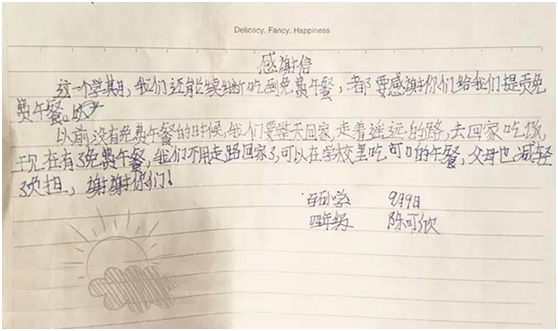 Delicacy. Fancy. Happiness
感谢信
这一个学期,我们还能继续吃到免费午餐,都要感谢你们给我们提贡免
费午餐。
以前没有免费午餐的时候,我们要整天回家,走着遥远的路,去回家吃饭,
现在有了免费午餐,我们不用走路回家了,可以在学校里吃可口的午餐,父母也减轻
了负担,谢谢你们!
9月9日
四年级 陈可欣